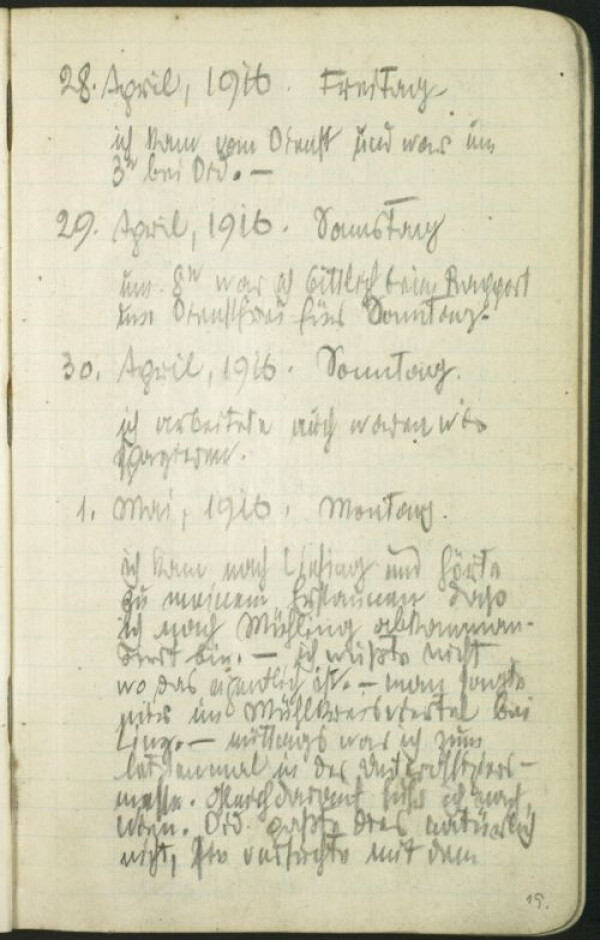 28. April, 1916. Freitag.
ich kam vom Dienst und war um
3h bei Ord. —
29. April, 1916. Samstag
um 8h war ich bittlich beim Rapport
um Dienstfrei für Sonntag.
30. April, 1916. Sonntag.
ich arbeitete auch waren wir
spazieren.
1. Mai, 1916. Montag.
ich kam nach Liesing und hörte
zu meinem Erstaunen dass
ich nach Mühling abkomman-
diert bin. — ich wußte nicht
wo das eigentlich ist. — man sagte
mir im Mühlkreisviertel bei
Linz. — mittags war ich zum
letztenmal in der Unteroffiziers-
messe. gleich darauf fuhr ich nach
Wien. Ord. paßte dies natürlich
nicht, sie versuchte mit dem
19.